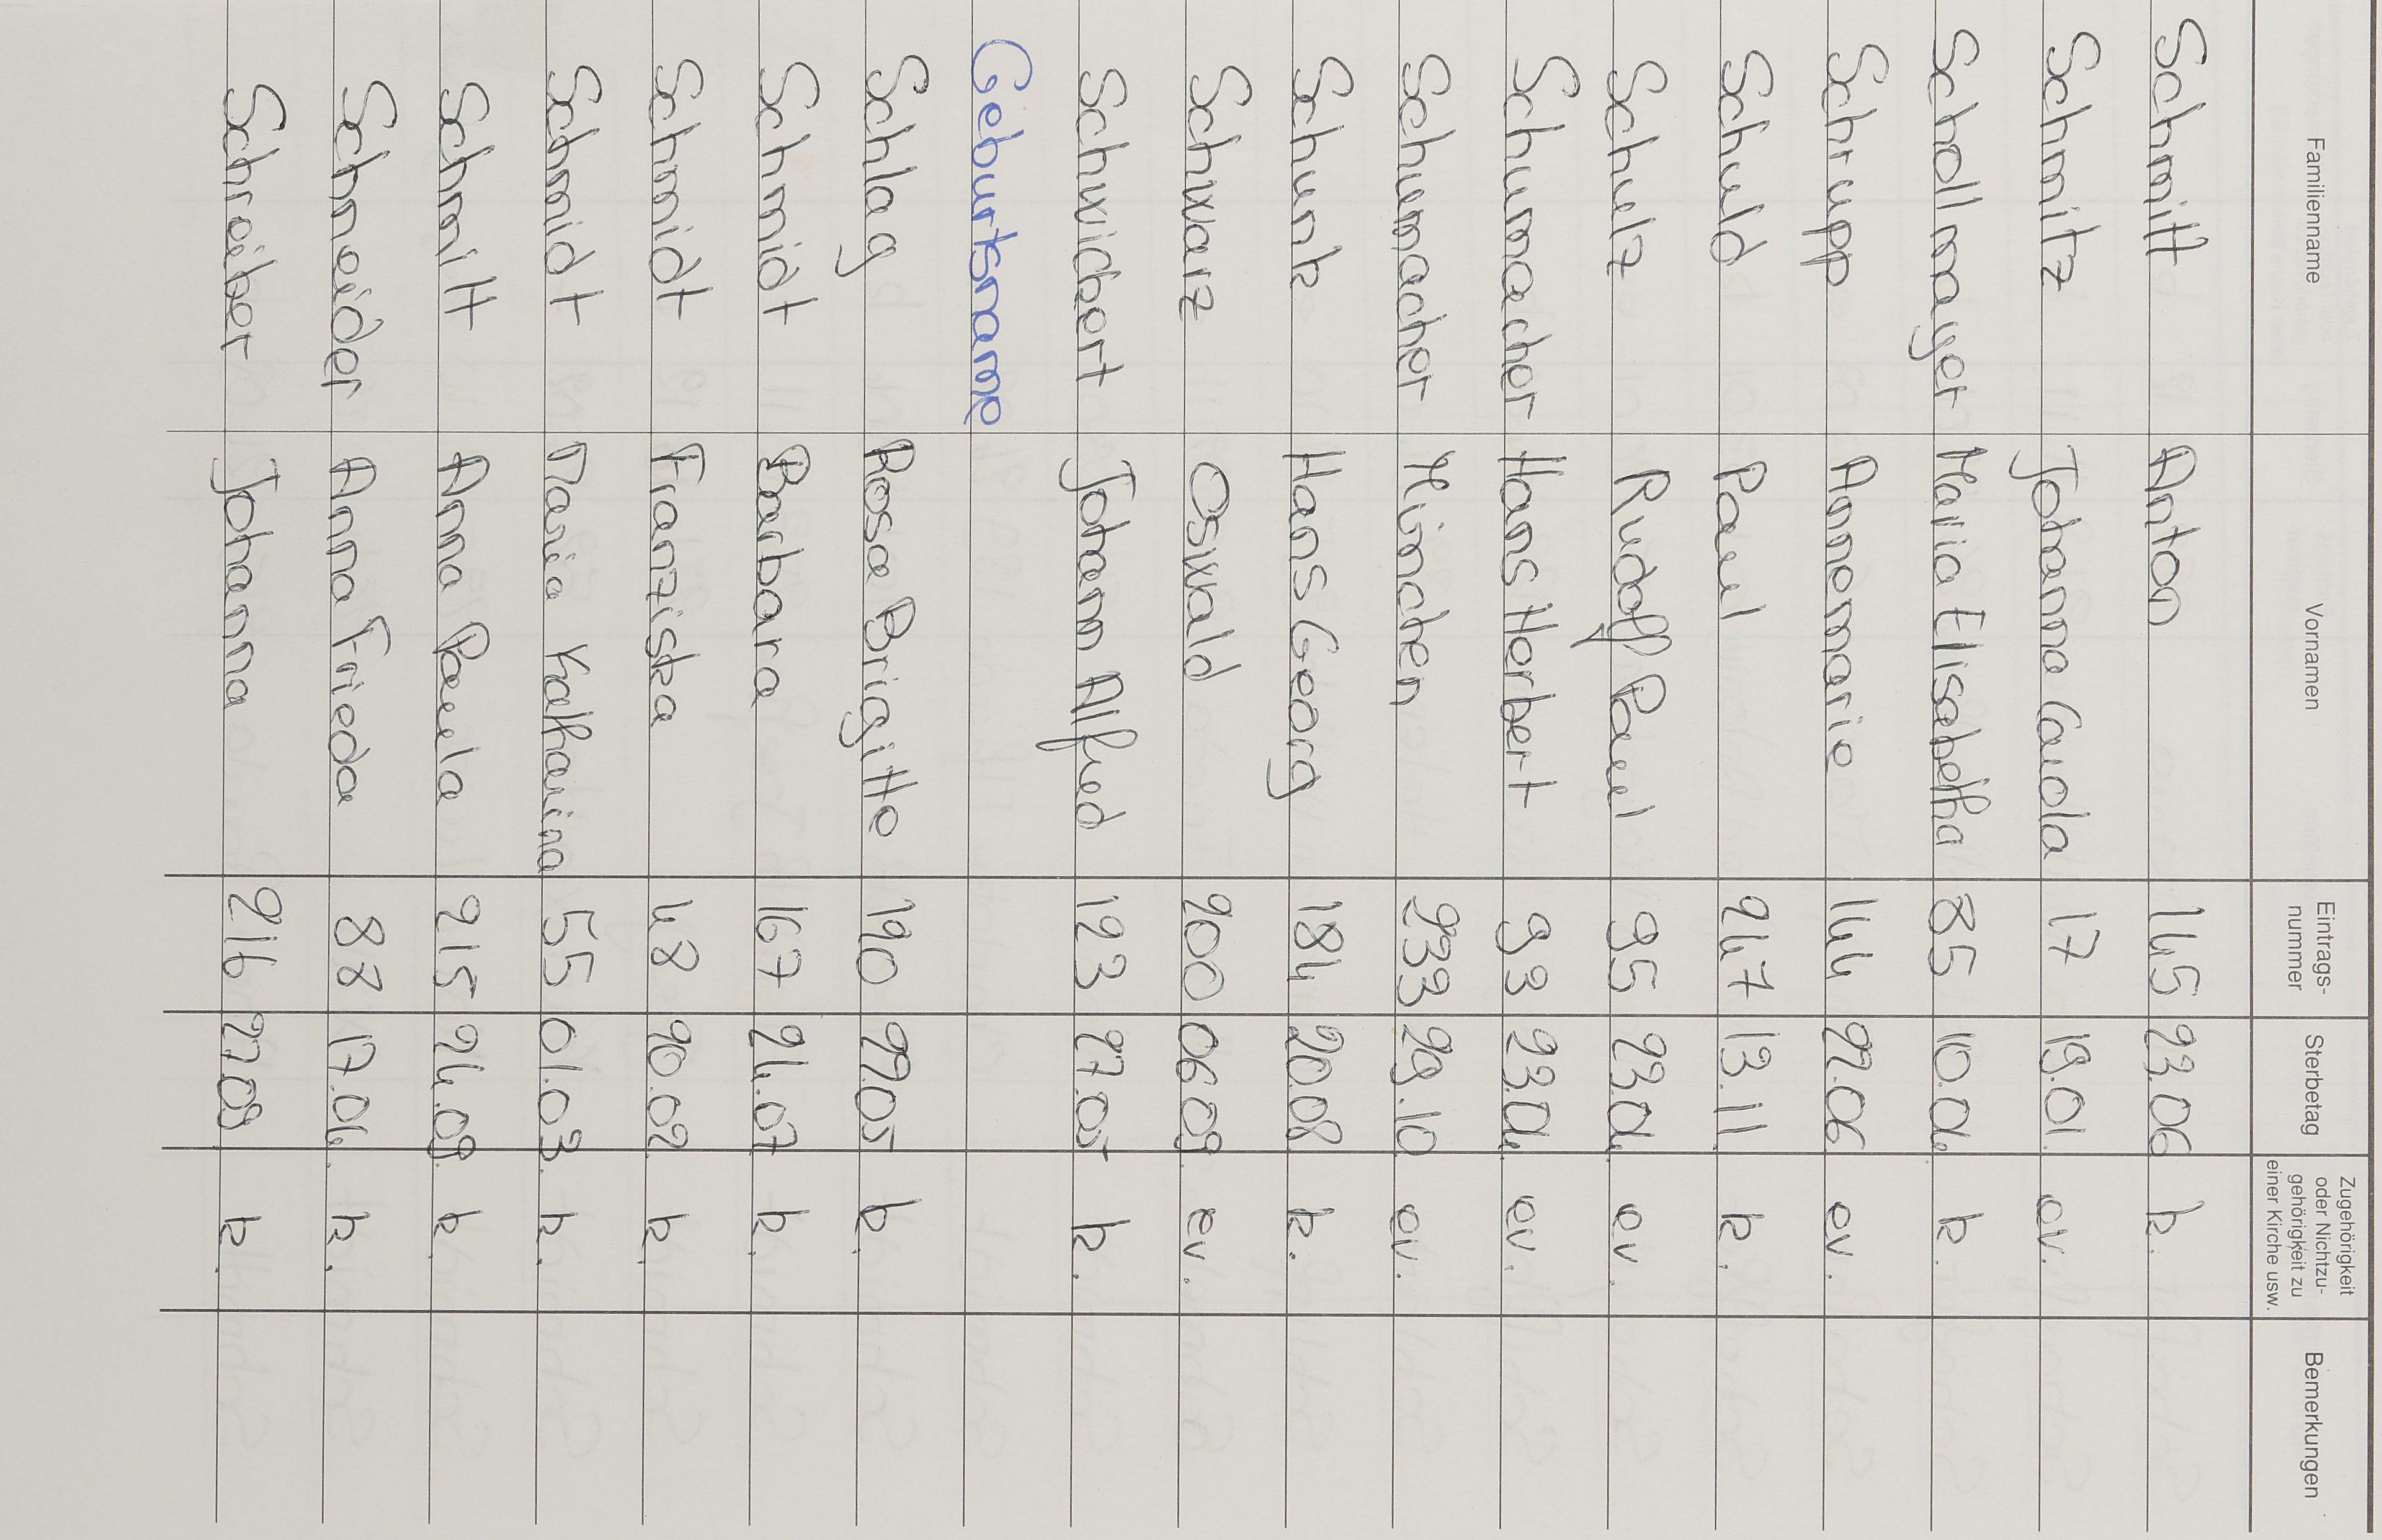 Familienname Vornamen Eintrags-nummer Sterbetag Zugehörigkeit oder Nichtzu-gehörigkeit zu einer Kirche usw. Bemerkungen
Schmitt Anton 145 23.06 k.
Schmitz Johanna Carola 17 19.01. ev.
Schollmayer Maria Elisabetha 85 10.04. k.
Schrupp Annemarie 144 22.06 ev.
Schuld Paul 247 13.11. k.
Schulz Rudolf Paul 95 23.04. ev.
Schumacher Hans Herbert 93 23.04. ev.
Schumacher Minchen 233 29.10 ev.
Schunk Hans Georg 184 20.08 k.
Schwarz Oswald 200 06.09. ev.
Schwickert Johann Alfred 123 27.05 k.
Geburtsname
Schlag Rosa Brigitte 120 22.05 k.
Schmidt Barbara 167 24.07 k.
Schmidt Franziska 48 20.02 k.
Schmidt Maria Katharina 55 01.03. k.
Schmitt Anna Paula 215 24.09. k.
Schneider Anna Frieda 88 17.04. k.
Schreiber Johanna 216 27.09. k.